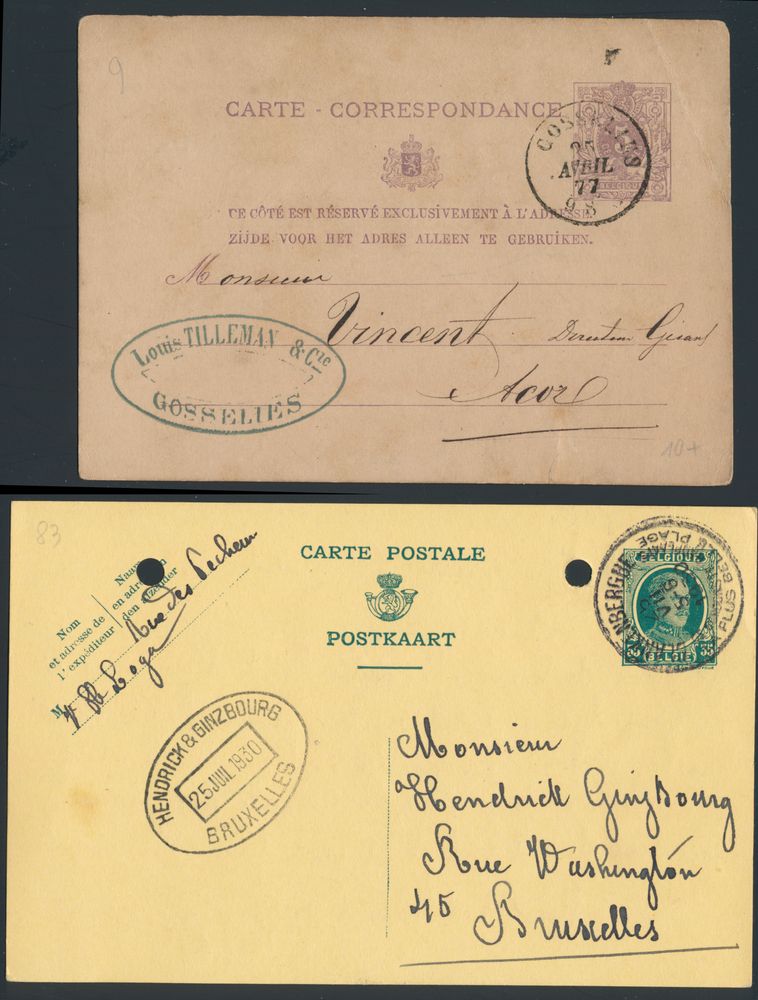 9
CARTE - CORRESPONDANCE
GOSSELIES
25
AVRIL
77
BELGIQUE
CE CÔTÉ EST RÉSERVÉ EXCLUSIVEMENT À L'ADRESSE.
ZIJDE VOOR HET ADRES ALLEEN TE GEBRUIKEN.
Monsieur
Vincent Directeur Gérant
Acoz
Louis TILLEMAN & Cie
GOSSELIES
10+
83
CARTE POSTALE
POSTKAART
Nom
et adresse de
l'expéditeur
Naam
en adres
den afzender
M
Rue des Pecheurs
BELGIQUE
35 BELGIË 35
PLAGE
PLUS BE
HENDRICK & GINZBOURG
25 JUIL 1930
BRUXELLES
Monsieur
Hendrick Ginzbourg
Rue Washington
45
Bruxelles